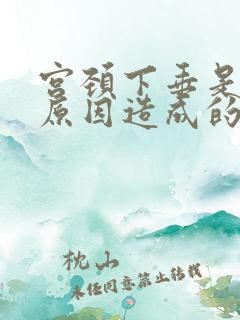 宫颈下垂是
原因造成的
枕山
未经同意禁止转载